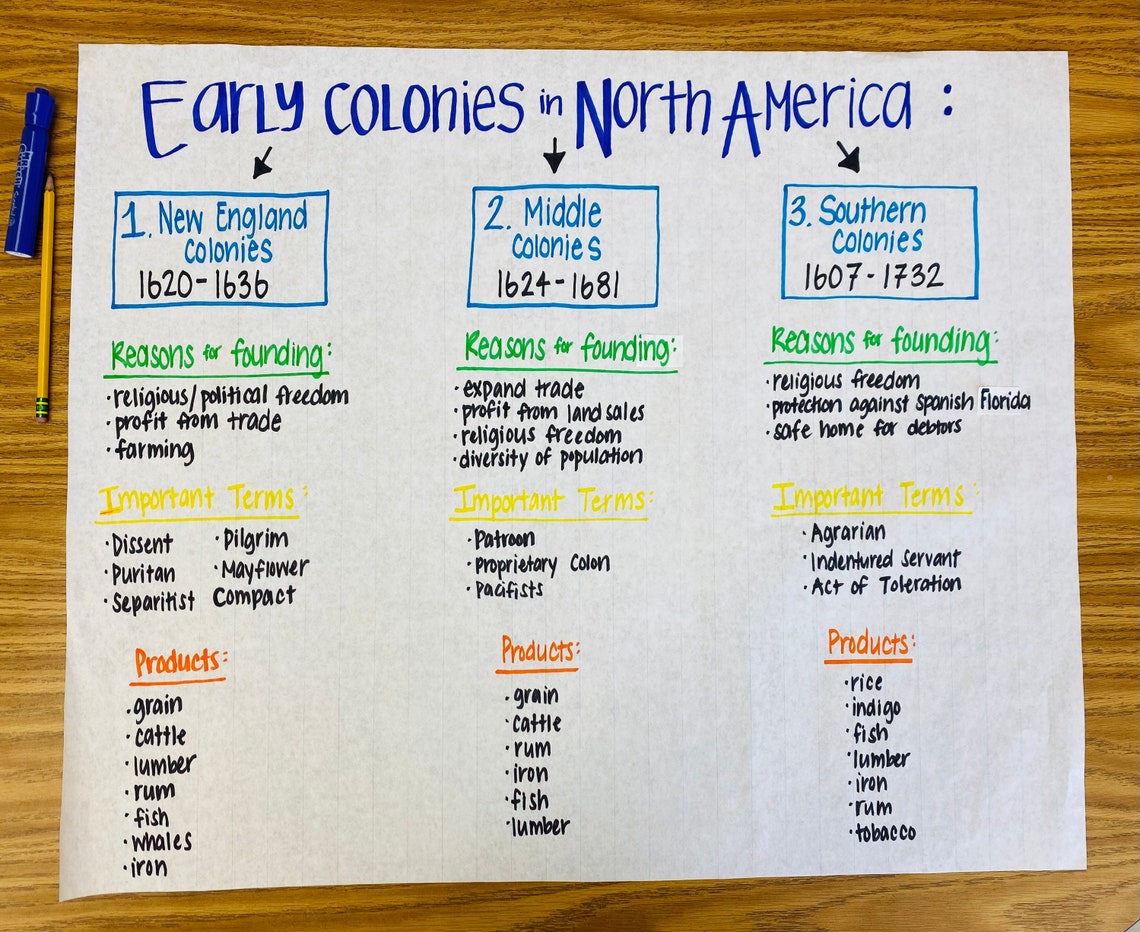 Early Colonies in North America :
1. New England
Colonies
1620-1636
Reasons for founding:
·religious/political freedom
·profit from trade
·farming
Important Terms:
·Dissent
·Puritan
·Separitist
·Pilgrim
·Mayflower
Compact
Products:
·grain
·cattle
·lumber
·rum
·fish
·whales
·iron
2. Middle
Colonies
1624-1681
Reasons for founding:
·expand trade
·profit from land sales
·religious freedom
·diversity of population
Important Terms:
·Patroon
·Proprietary Colon
·Pacifists
Products:
·grain
·cattle
·rum
·iron
·fish
·lumber
3. Southern
Colonies
1607-1732
Reasons for founding:
·religious freedom
·protection against Spanish Florida
·safe home for debtors
Important Terms:
·Agrarian
·Indentured Servant
·Act of Toleration
Products:
·rice
·indigo
·fish
·lumber
·iron
·rum
·tobacco